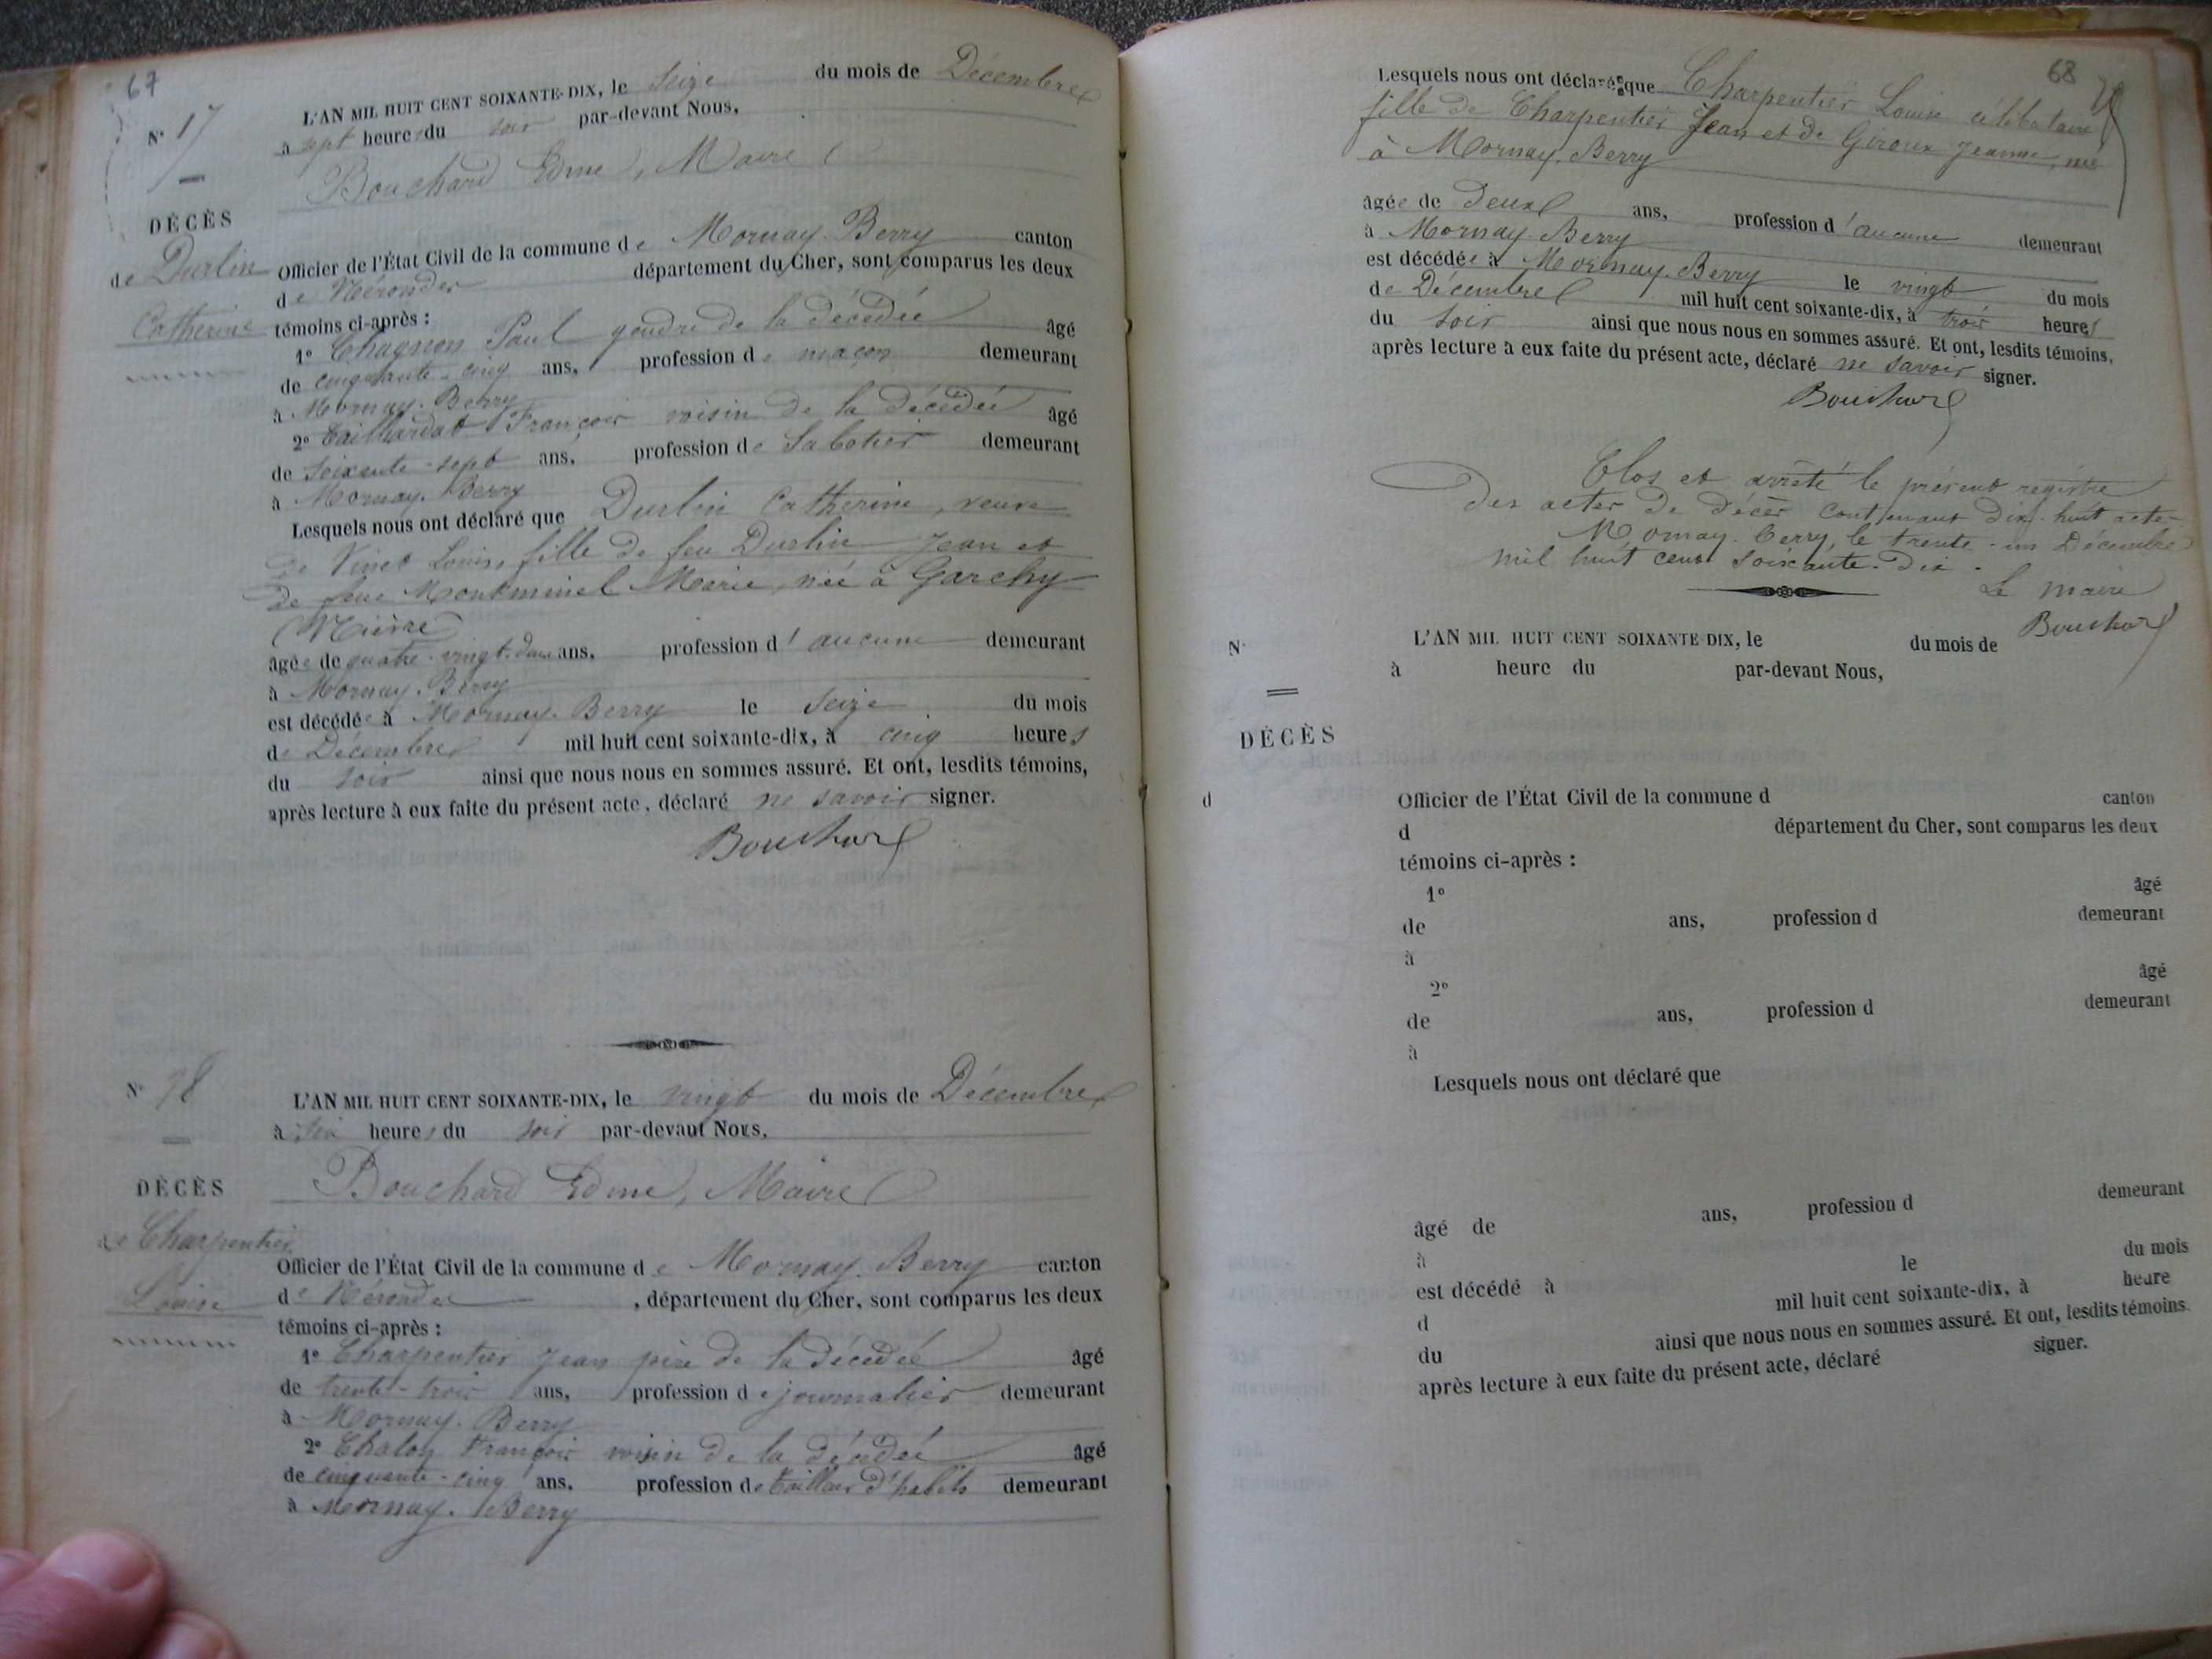 67
N° 17
L'AN MIL HUIT CENT SOIXANTE-DIX, le Seize du mois de Décembre
à sept heures du soir par-devant Nous,
Bouchard Edme, Maire
DÉCÈS
de Durlin
Catherine
Officier de l'État Civil de la commune de Mornay-Berry canton
de Nérondes département du Cher, sont comparus les deux
témoins ci-après :
1° Chagnon Paul gendre de la décédée âgé
de cinquante-cinq ans, profession de maçon demeurant
à Mornay-Berry
2° Taillardat François voisin de la décédée âgé
de soixante-sept ans, profession de Sabotier demeurant
à Mornay-Berry
Lesquels nous ont déclaré que Durlin Catherine, veuve
de Vinet Louis, fille de feu Durlin Jean et
de feue Marie, née à Garchy
(Nièvre)
âgée de quatre-vingt- ans, profession d'aucune demeurant
à Mornay-Berry
est décédée à Mornay-Berry le Seize du mois
de Décembre mil huit cent soixante-dix, à cinq heures
du soir ainsi que nous nous en sommes assuré. Et ont, lesdits témoins,
après lecture à eux faite du présent acte, déclaré ne savoir signer.
Bouchard
N° 18
L'AN MIL HUIT CENT SOIXANTE-DIX, le vingt du mois de Décembre
à six heures du soir par-devant Nous,
Bouchard Edme, Maire
DÉCÈS
de Charpentier
Louise
Officier de l'État Civil de la commune de Mornay-Berry canton
de Nérondes, département du Cher, sont comparus les deux
témoins ci-après :
1° Charpentier Jean père de la décédée âgé
de trente-trois ans, profession de journalier demeurant
à Mornay-Berry
2° Chalon François voisin de la décédée âgé
de cinquante-cinq ans, profession de tailleur d'habits demeurant
à Mornay-Berry
68
Lesquels nous ont déclaré que Charpentier Louise célibataire
fille de Charpentier Jean et de Giroux Jeanne, née
à Mornay-Berry
âgée de deux ans, profession d'aucune demeurant
à Mornay-Berry
est décédée à Mornay-Berry le vingt du mois
de Décembre mil huit cent soixante-dix, à trois heures
du soir ainsi que nous nous en sommes assuré. Et ont, lesdits témoins,
après lecture à eux faite du présent acte, déclaré ne savoir signer.
Bouchard
Clos et arrêté le présent registre
des actes de décès contenant dix-huit actes
Mornay-Berry, le trente-un Décembre
mil huit cent soixante-dix.
Le maire
Bouchard
N°
L'AN MIL HUIT CENT SOIXANTE-DIX, le du mois de
à heure du par-devant Nous,
DÉCÈS
d
Officier de l'État Civil de la commune d canton
d département du Cher, sont comparus les deux
témoins ci-après :
1° âgé
de ans, profession d demeurant
à
2° âgé
de ans, profession d demeurant
à
Lesquels nous ont déclaré que
âgé de ans, profession d demeurant
à
est décédé à le du mois
d mil huit cent soixante-dix, à heure
du ainsi que nous nous en sommes assuré. Et ont, lesdits témoins.
après lecture à eux faite du présent acte, déclaré signer.